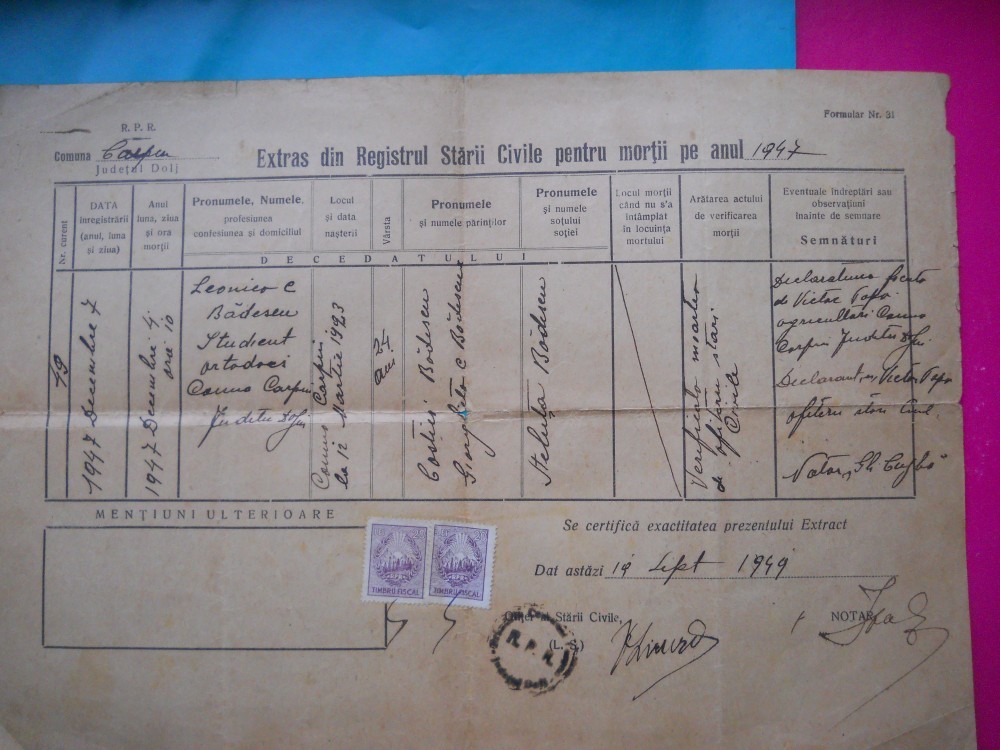 R. P. R.
Formular Nr. 31
Comuna Cârpen
Județul Dolj
Extras din Registrul Stării Civile pentru morții pe anul 1947
Nr. curent
DATA
înregistrării
(anul, luna
și ziua)
Anul
luna, ziua
și ora
morții
Pronumele, Numele,
profesiunea
confesiunea și domiciliul
Locul
și data
nașterii
Vârsta
Pronumele
și numele părinților
Pronumele
și numele
soțului
soției
Locul morții
când nu s'a
întâmplat
în locuința
mortului
Arătarea actului
de verificarea
morții
Eventuale îndreptări sau
observațiuni
înainte de semnare
Semnături
DECEDATULUI
19
1947 Decembre 7
1947 Decembri 4.
orie 10
Leonico C
Bădescu
Student
ortodoci
Comno Carpin
Juditu Dolju
Comno Carpin
la 12 Martie 1923
24
ani
Costici Bodescu
C Bodescu
Steluța Bodescu
Verificato moartea
de ofițeru stari
Civile
Declaratiunea facuta
de Victor Popa
agricultori Comno
Carpin Juditu Dolju
Declarant, Victor Popa
ofițeru stari Civil.
Notar, Gh
MENȚIUNI ULTERIOARE
Se certifică exactitatea prezentului Extract
Dat astăzi 19 Sept 1949
TIMBRU FISCAL
TIMBRU FISCAL
Ofițerul Stării Civile,
NOTAR
(L. S.)
R. P. R.